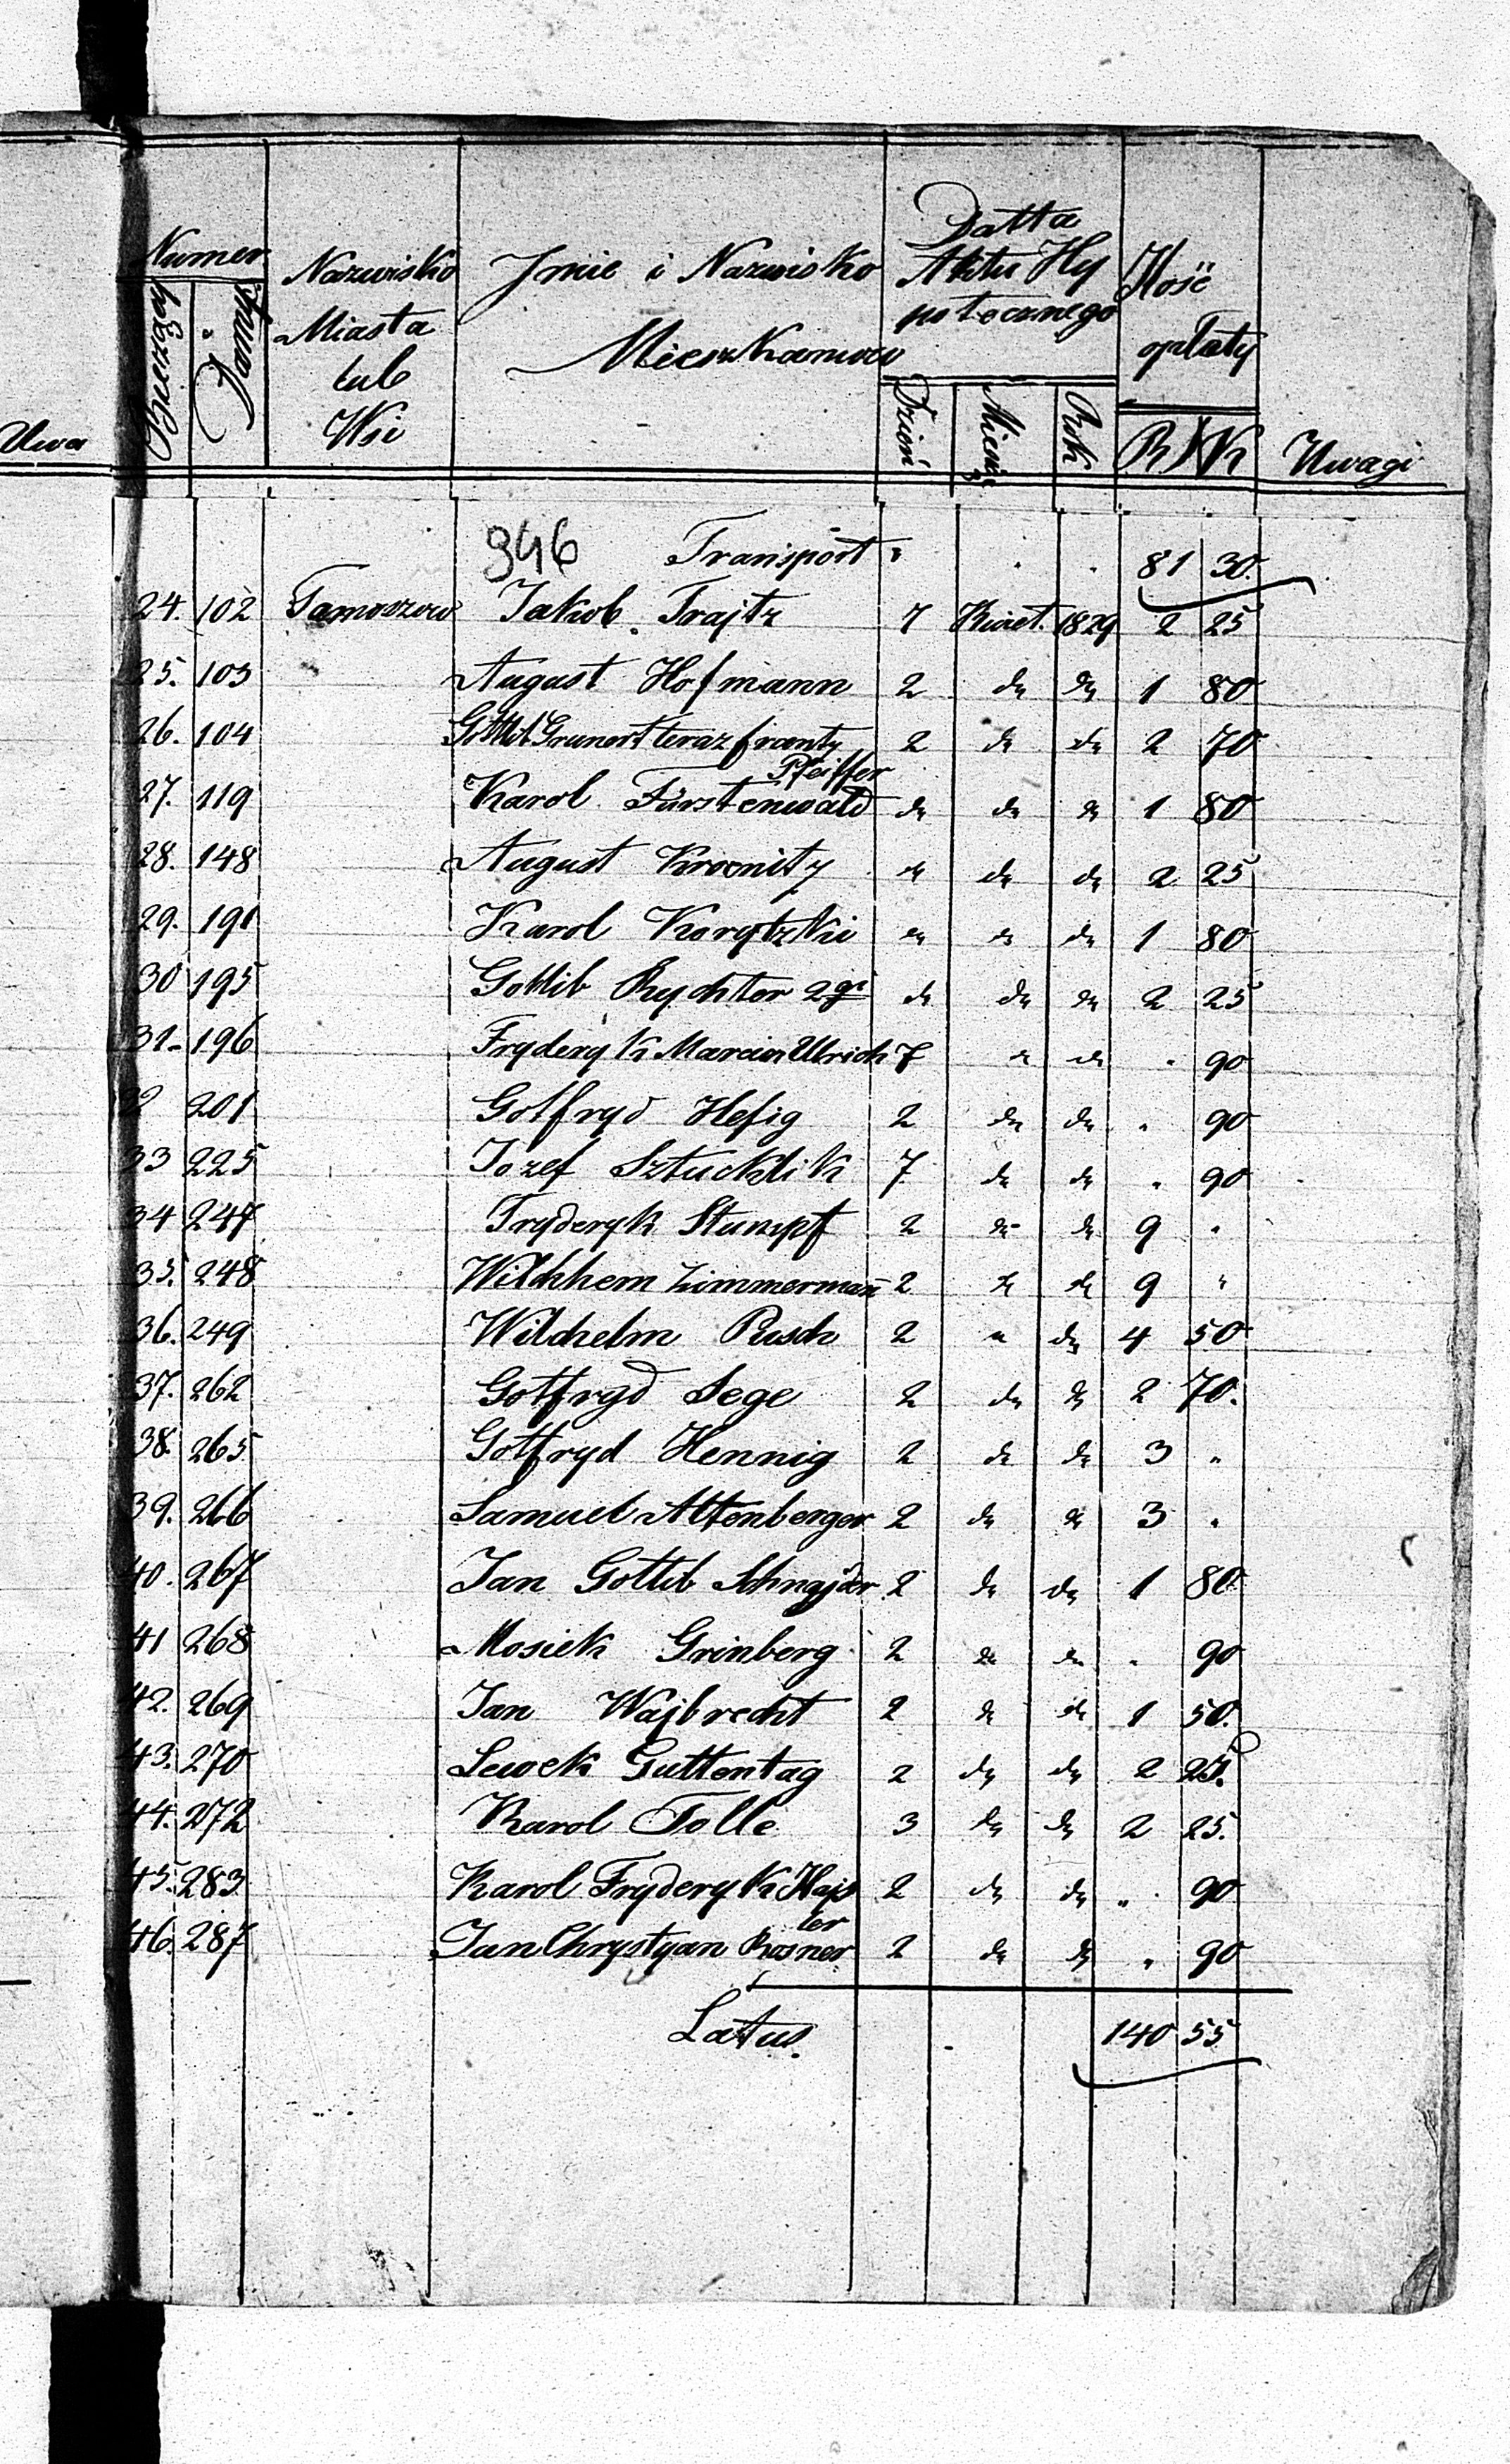 Uwa
Numer
Bieżący
Domu
Nazwisko
Miasta
lub
Wsi
Jmie i Nazwisko
Mieszkancow
Datta
Aktu Hy
potecznego
Dzień
Miesiąc
Rok
Ilość
opłaty
R K
Uwagi
946 Transport " . . 81 30.
24. 102 Tomaszow Jakob Trajtz 7 Kwiet. 1829 2 25
25. 103 August Hofmann 2 do do 1 80
26. 104 Gottlib Grunert teraz frantz Pfeiffer 2 do do 2 70
27. 119 Karol Fürstenwald do do do 1 80
28. 148 August Kroenitz do do do 2 25
29. 191 Karol Korytzki do do do 1 80
30 195 Gottlib Rychter 2gi do do do 2 25
31. 196 Fryderyk Marcin Ulrich 7 do do " 90
32 201 Gotfryd Hefig 2 do do " 90
33 225 Jozef Sztucklik 7 do do " 90
34 247 Fryderyk Stumpf 2 do do 9 "
35. 248 Wilchhem Zimmermañ 2 do do 9 "
36. 249 Wilchelm Rusch 2 do do 4 50
37. 262 Gotfryd Sege 2 do do 2 70.
38. 265 Gotfryd Hennig 2 do do 3 "
39. 266 Samuel Altenberger 2 do do 3 "
40. 267 Jan Gottlib Schnajder 2 do do 1 80
41 268 Mosiek Grinberg 2 do do " 90
42. 269 Jan Wajbrecht 2 do do 1 50.
43. 270 Lewek Guttentag 2 do do 2 25.
44. 272 Karol Tolle 3 do do 2 25.
45. 283 Karol Fryderyk Hajs
ler 2 do do " 90
46. 287 Jan Chrystyan Rosner 2 do do " 90
Latus. 140 55